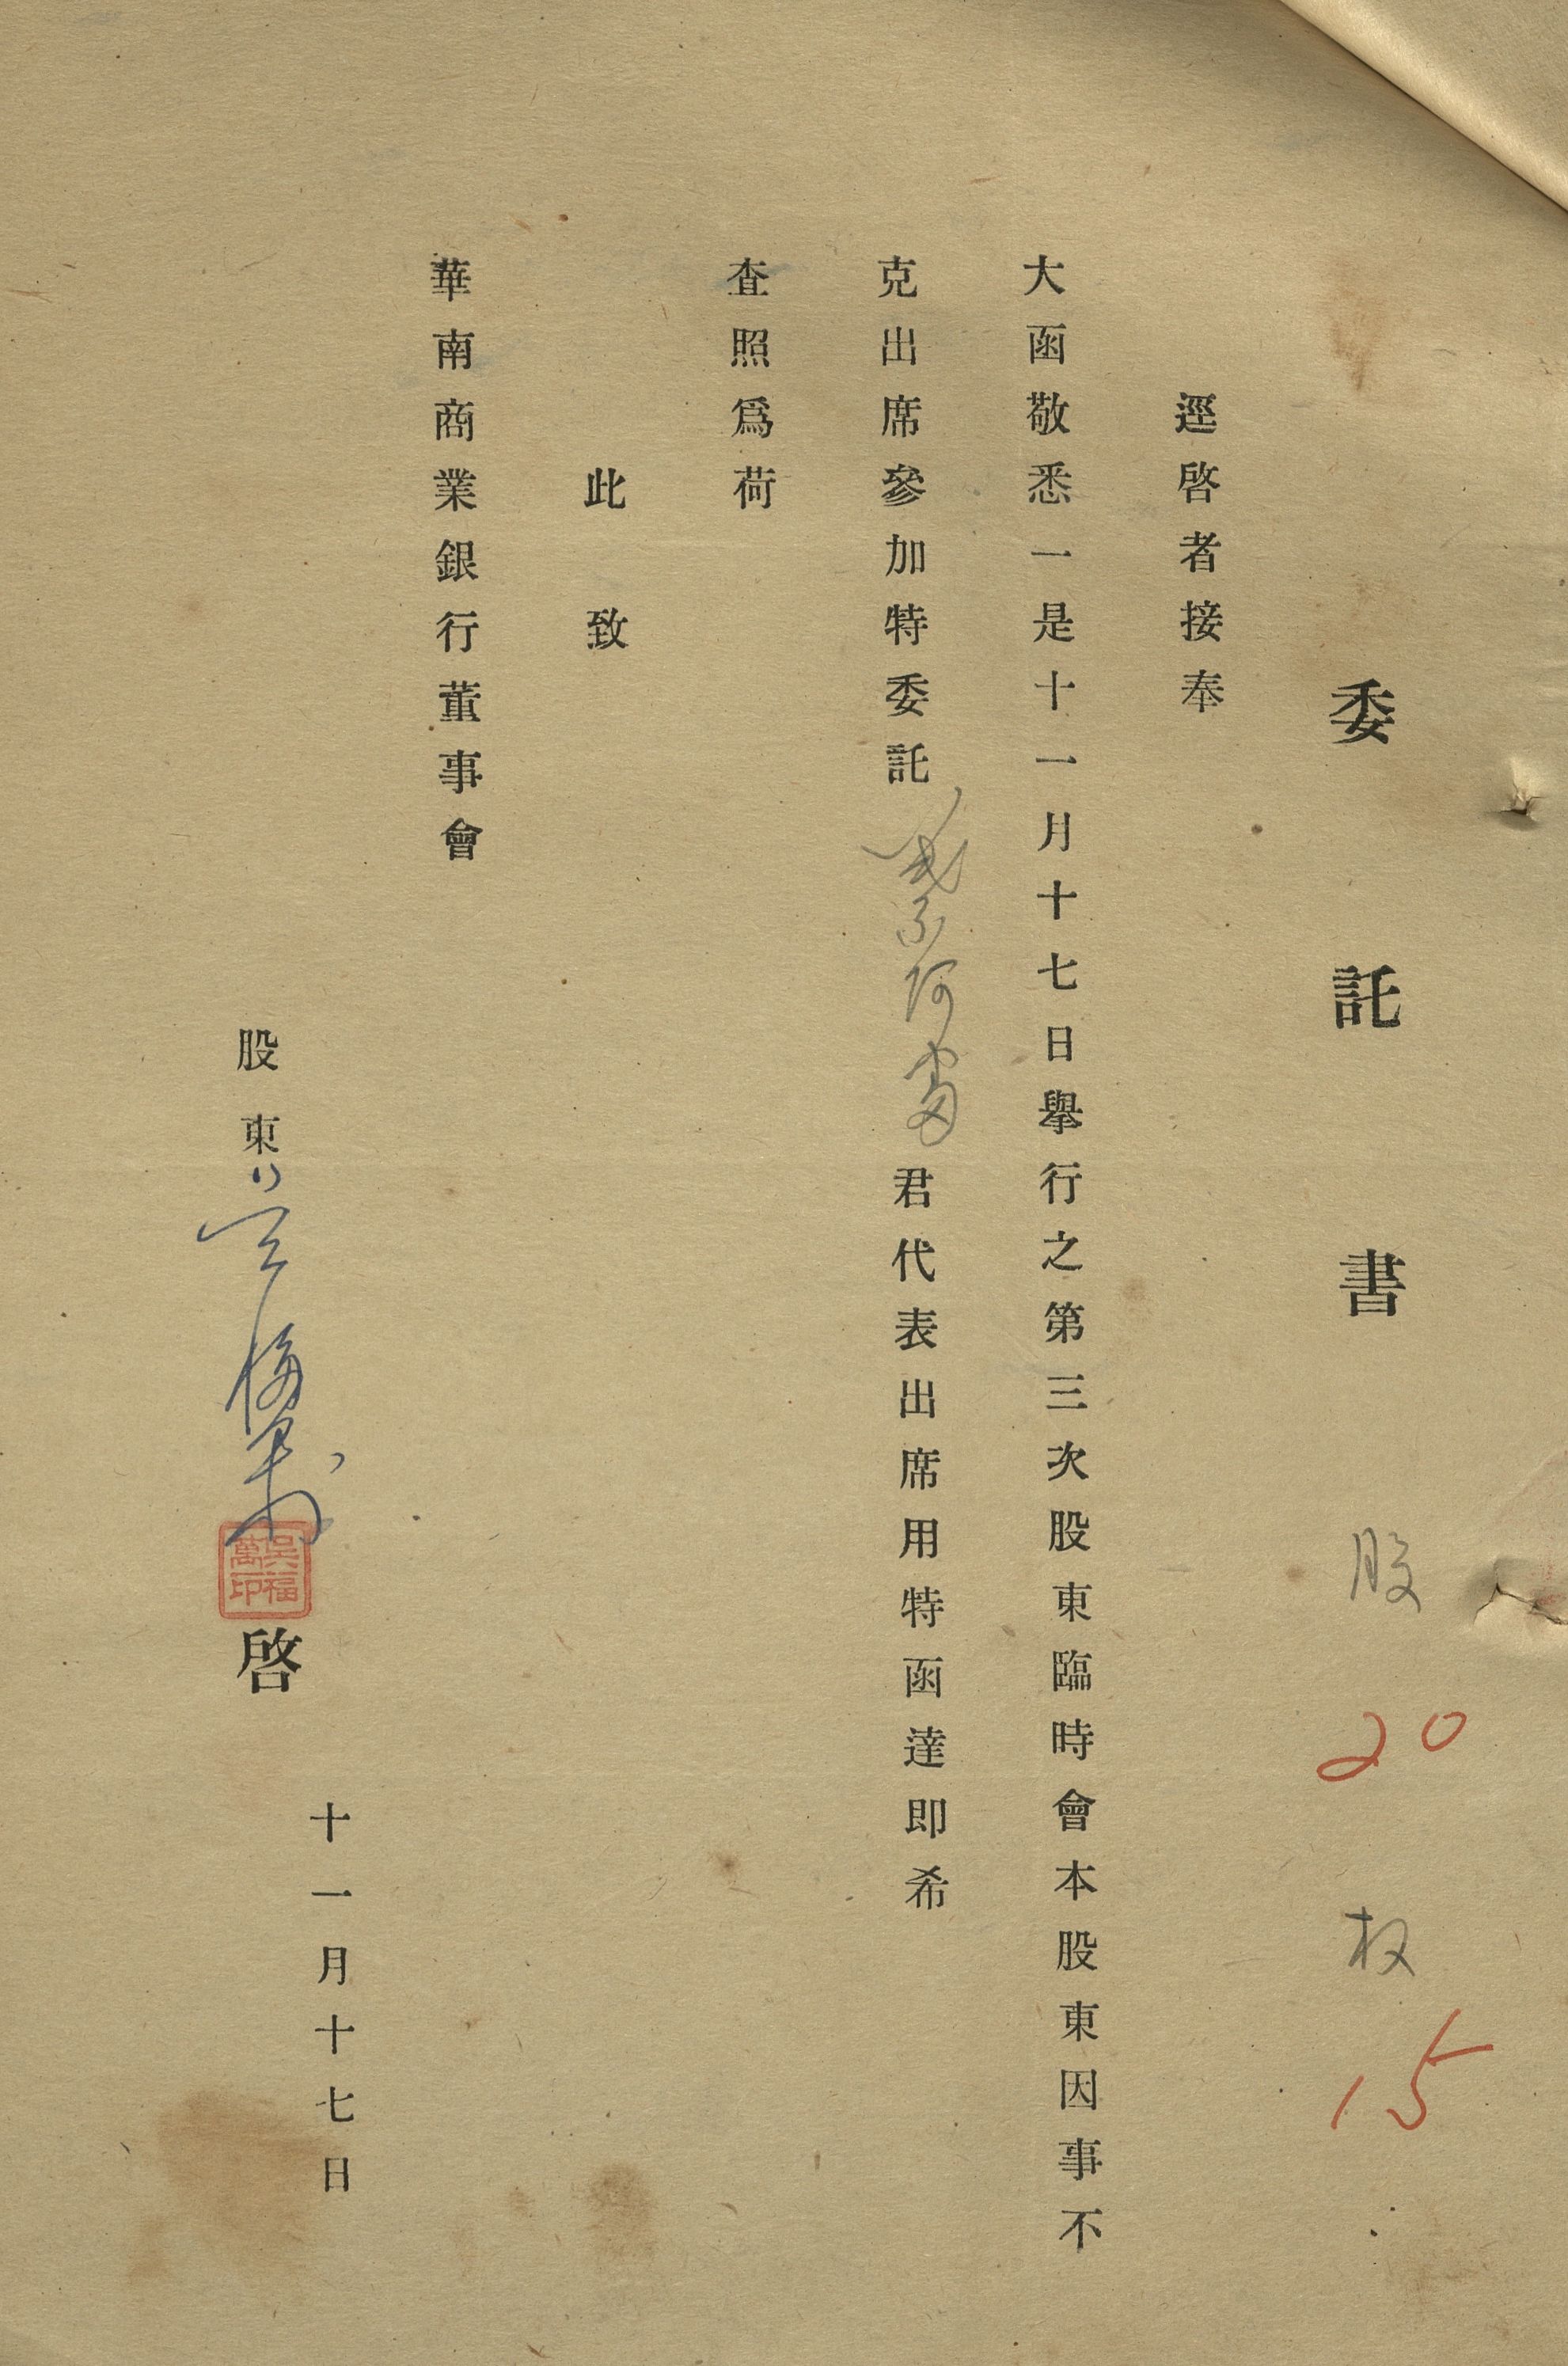 委託書 股 20 权 15
逕啓者接奉
大函敬悉一是十一月十七日舉行之第三次股東臨時會本股東因事不
克出席參加特委託 君代表出席用特函達即希
查照爲荷
此致
華南商業銀行董事會
十一月十七日
股東 吳福萬 啓
吳福萬印